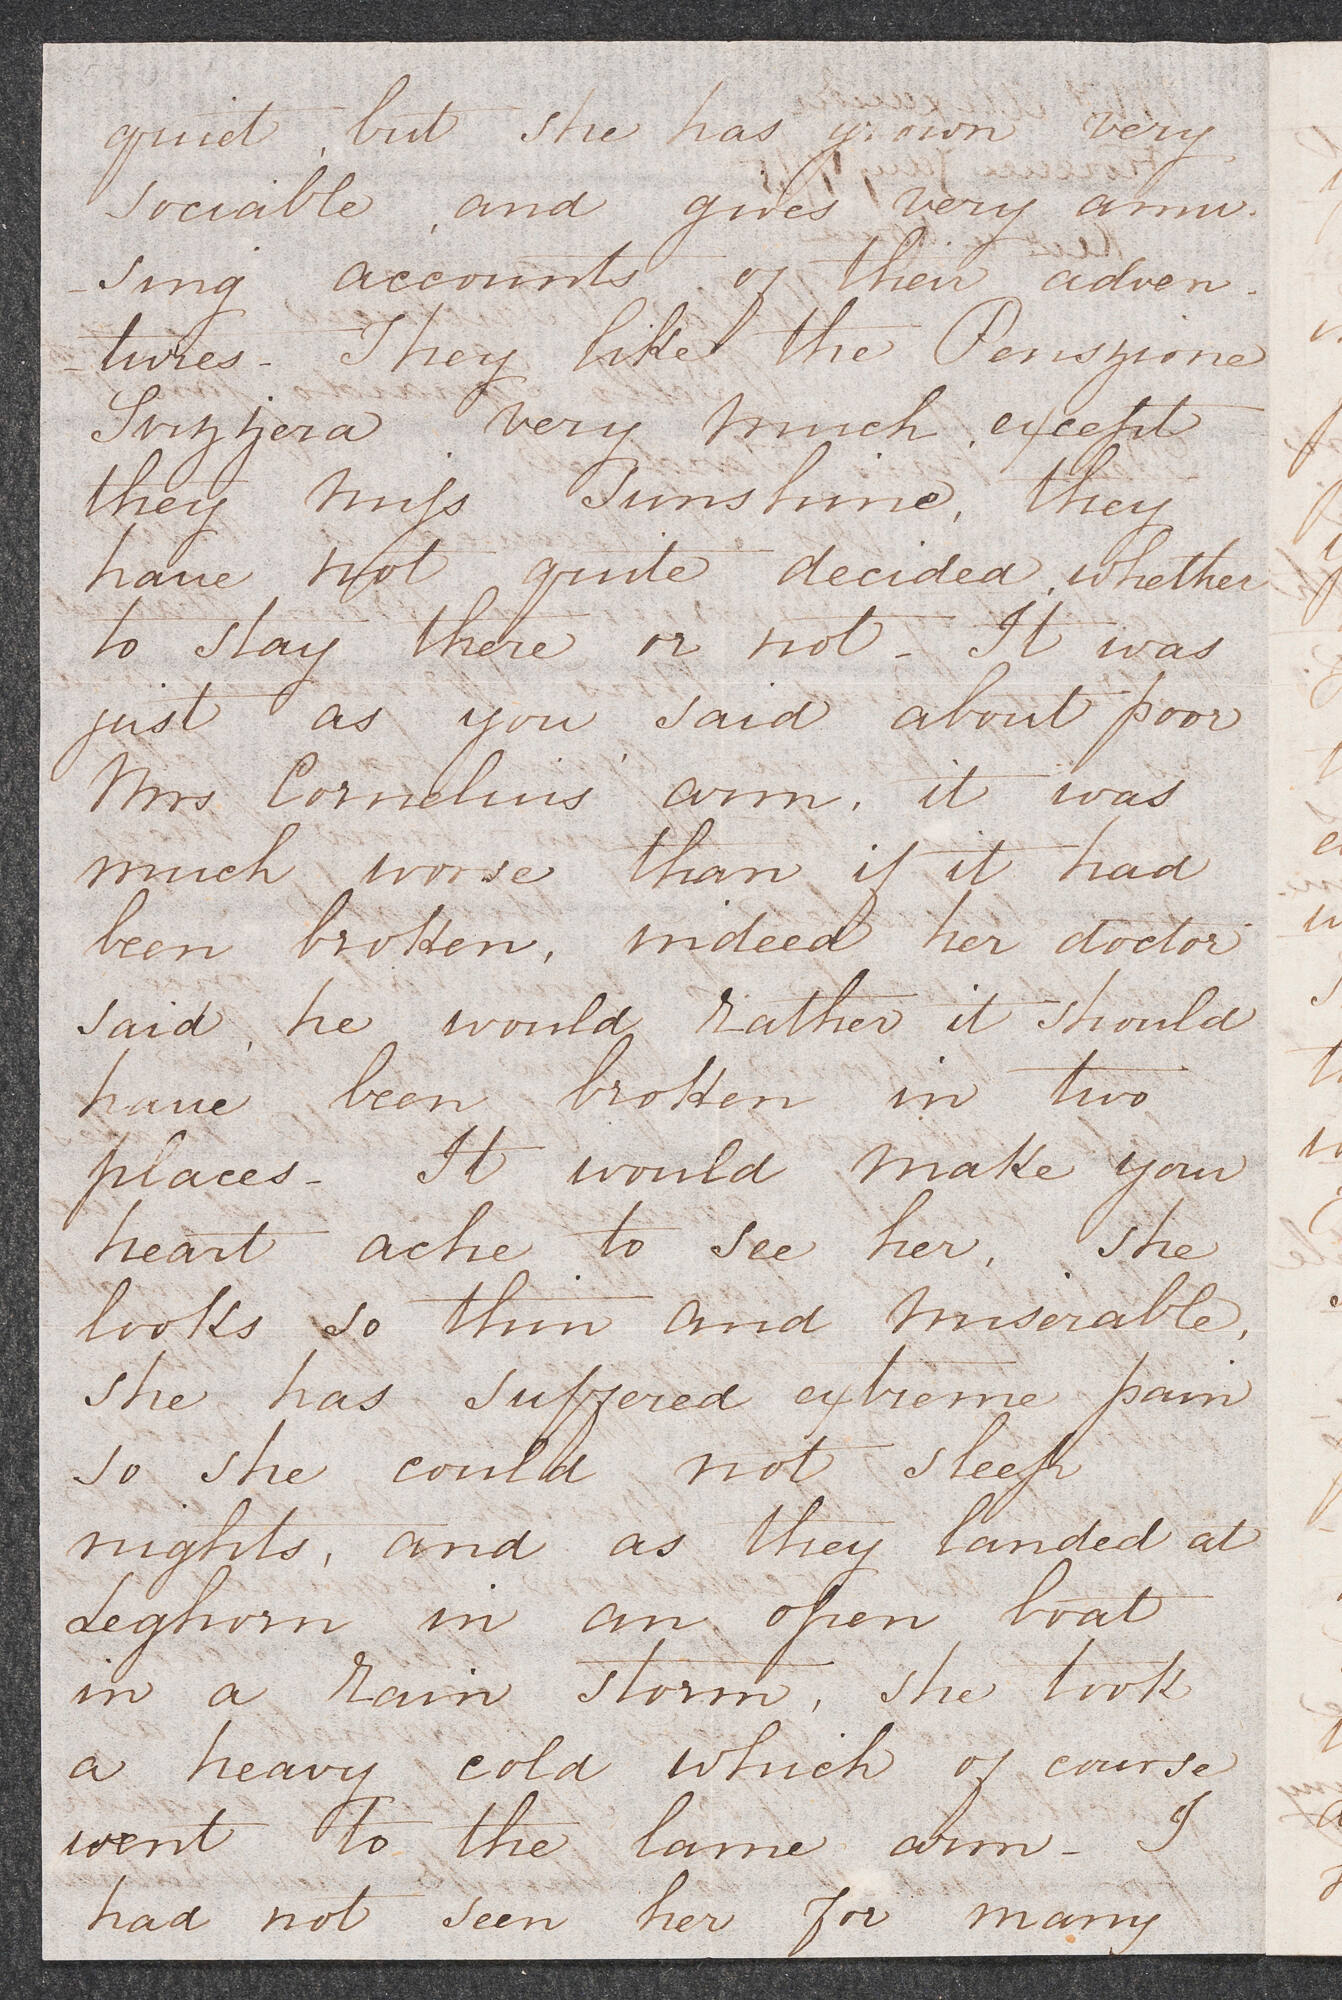 quiet, but she has grown very
sociable, and gives very amu-
-sing accounts of their adven-
-tures- They like the Penszione
Svizzera very much, except
they miss Sunshine, they
have not quite decided, whether
to stay there or not- It was
just as you said about poor
Mrs Cornelius' arm, it was
much worse than if it had
been broken, indeed her doctor
said, he would rather it should
have been broken in two
places- It would make your
heart ache to see her, she
looks so thin and miserable,
she has suffered extreme pain
so she could not sleep
nights, and as they landed at
Leghorn in an open boat
in a rain storm, she took
a heavy cold which of course
went to the lame arm- I
had not seen her for many